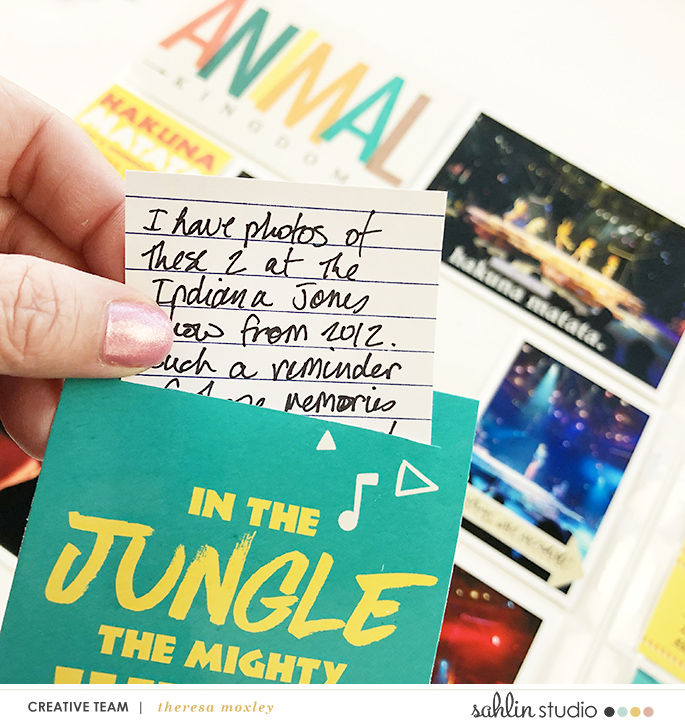 ANIMAL
KINGDOM
HAKUNA
MATATA
hakuna matata.
I have photos of
these 2 at the
Indiana Jones
from 2012.
a reminder
memories
IN THE
JUNGLE
THE MIGHTY
CREATIVE TEAM | theresa moxley
sahlin studio